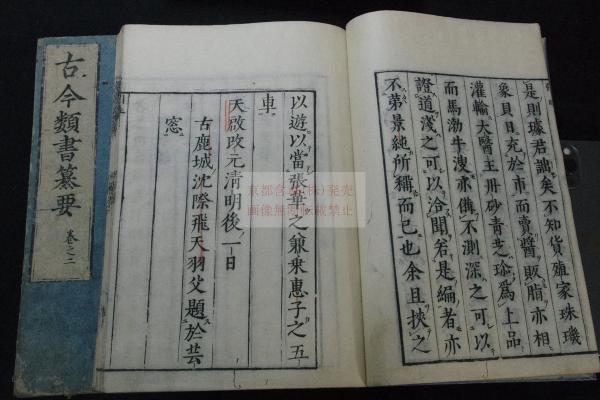 古今類書纂要 卷之二
是則璩君識矣不知貨殖家珠璣
象貝日充於市而賣醬販脂亦相
灌輸大醫王丹砂青芝珍爲上品
而馬渤牛溲亦僃不測深之可以
證道淺之可以洽聞若是編者亦
不第景純所稱而已也余且挾之
以遊以當張華之兼乘惠子之五
車
天啟改元清明後一日
古鹿城沈際飛天羽父題於芸
窩
京都含英(株)発売
画像無断転載禁止